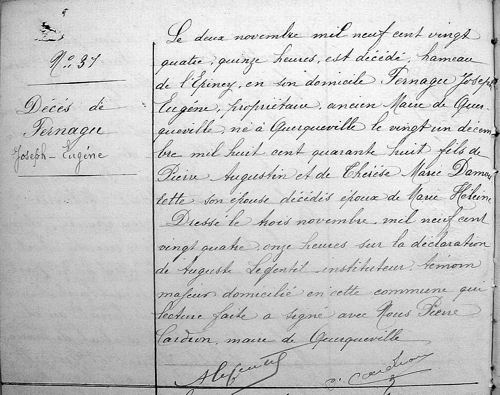 No. 37
Décès de
Fernagu
Joseph-Eugène
Le deux novembre mil neuf cent vingt
quatre, quinze heures, est décédé, hameau
de l'Epiney, en son domicile Fernagu Joseph
Eugène, propriétaire, ancien Maire de Quer
queville né à Querqueville le vingt un décem
bre mil huit cent quarante huit fils de
Pierre Augustin et de Thérèse Marie Damou
lette son épouse décédés époux de Marie Hélène
Dressé le trois novembre, mil neuf cent
vingt quatre, onze heures sur la déclaration
de Auguste Legentil instituteur, témoin
majeur domiciliée en cette commune qui
lecture faite a signé avec Nous Pierre
Cardron, maire de Querqueville
ALegentil